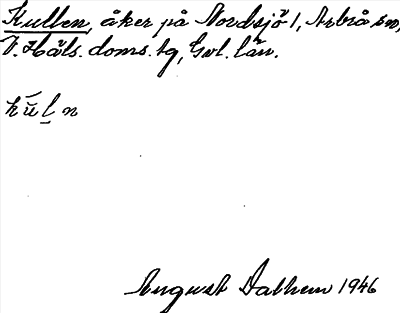 Kullen, åker på Nordsjö 1, Arbrå sn,
V. Häls. doms. tg, Gvl. län.
kŭl̠n
August Dalhem 1946